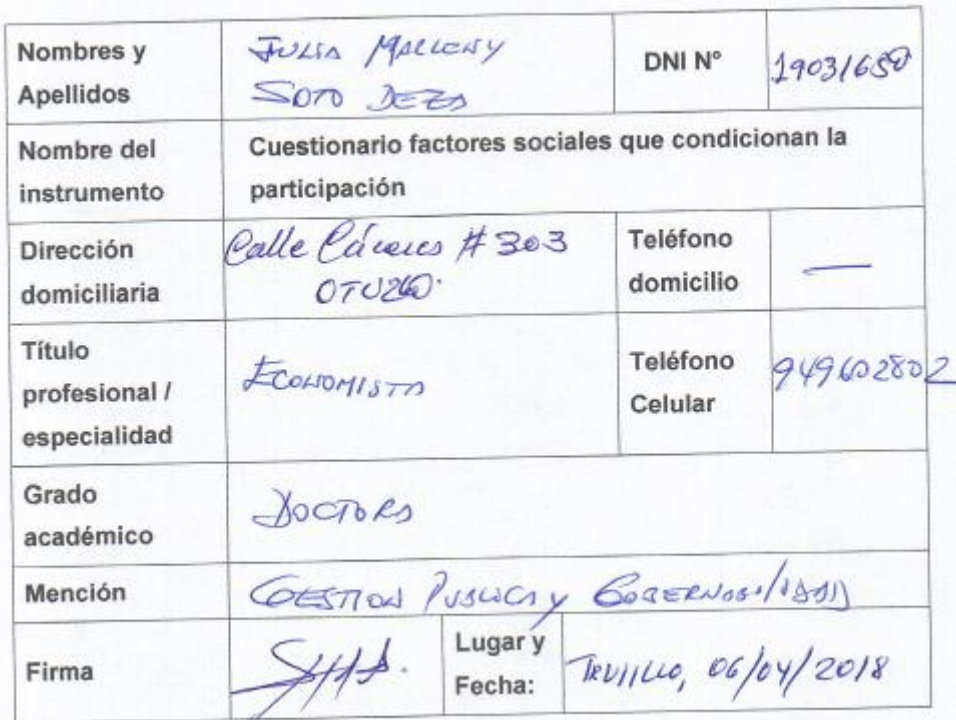 Nombres y Apellidos JULIA MALLENY SOTO DEZA DNI Nº 19031650
Nombre del instrumento Cuestionario factores sociales que condicionan la participación
Dirección domiciliaria Calle Cáceres # 303 OTUZCO. Teléfono domicilio —
Título profesional / especialidad ECONOMISTA Teléfono Celular 949602802
Grado académico DOCTORA
Mención GESTION PUBLICA y GOBERNABILIDAD
Firma Lugar y Fecha: TRUJILLO, 06/04/2018